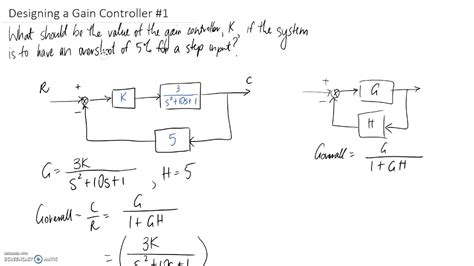 Designing a Gain Controller #1
What should be the value of the gain controller, K, if the system
is to have an overshoot of 5% for a step input?
R + − K 3 / s²+10s+1 C
5
+ − G
H
G = 3K / s²+10s+1 , H = 5
Goverall = G / 1+GH
Goverall = C / R = G / 1+GH
= ( 3K / s²+10s+1 )
SCREENCAST-O-MATIC